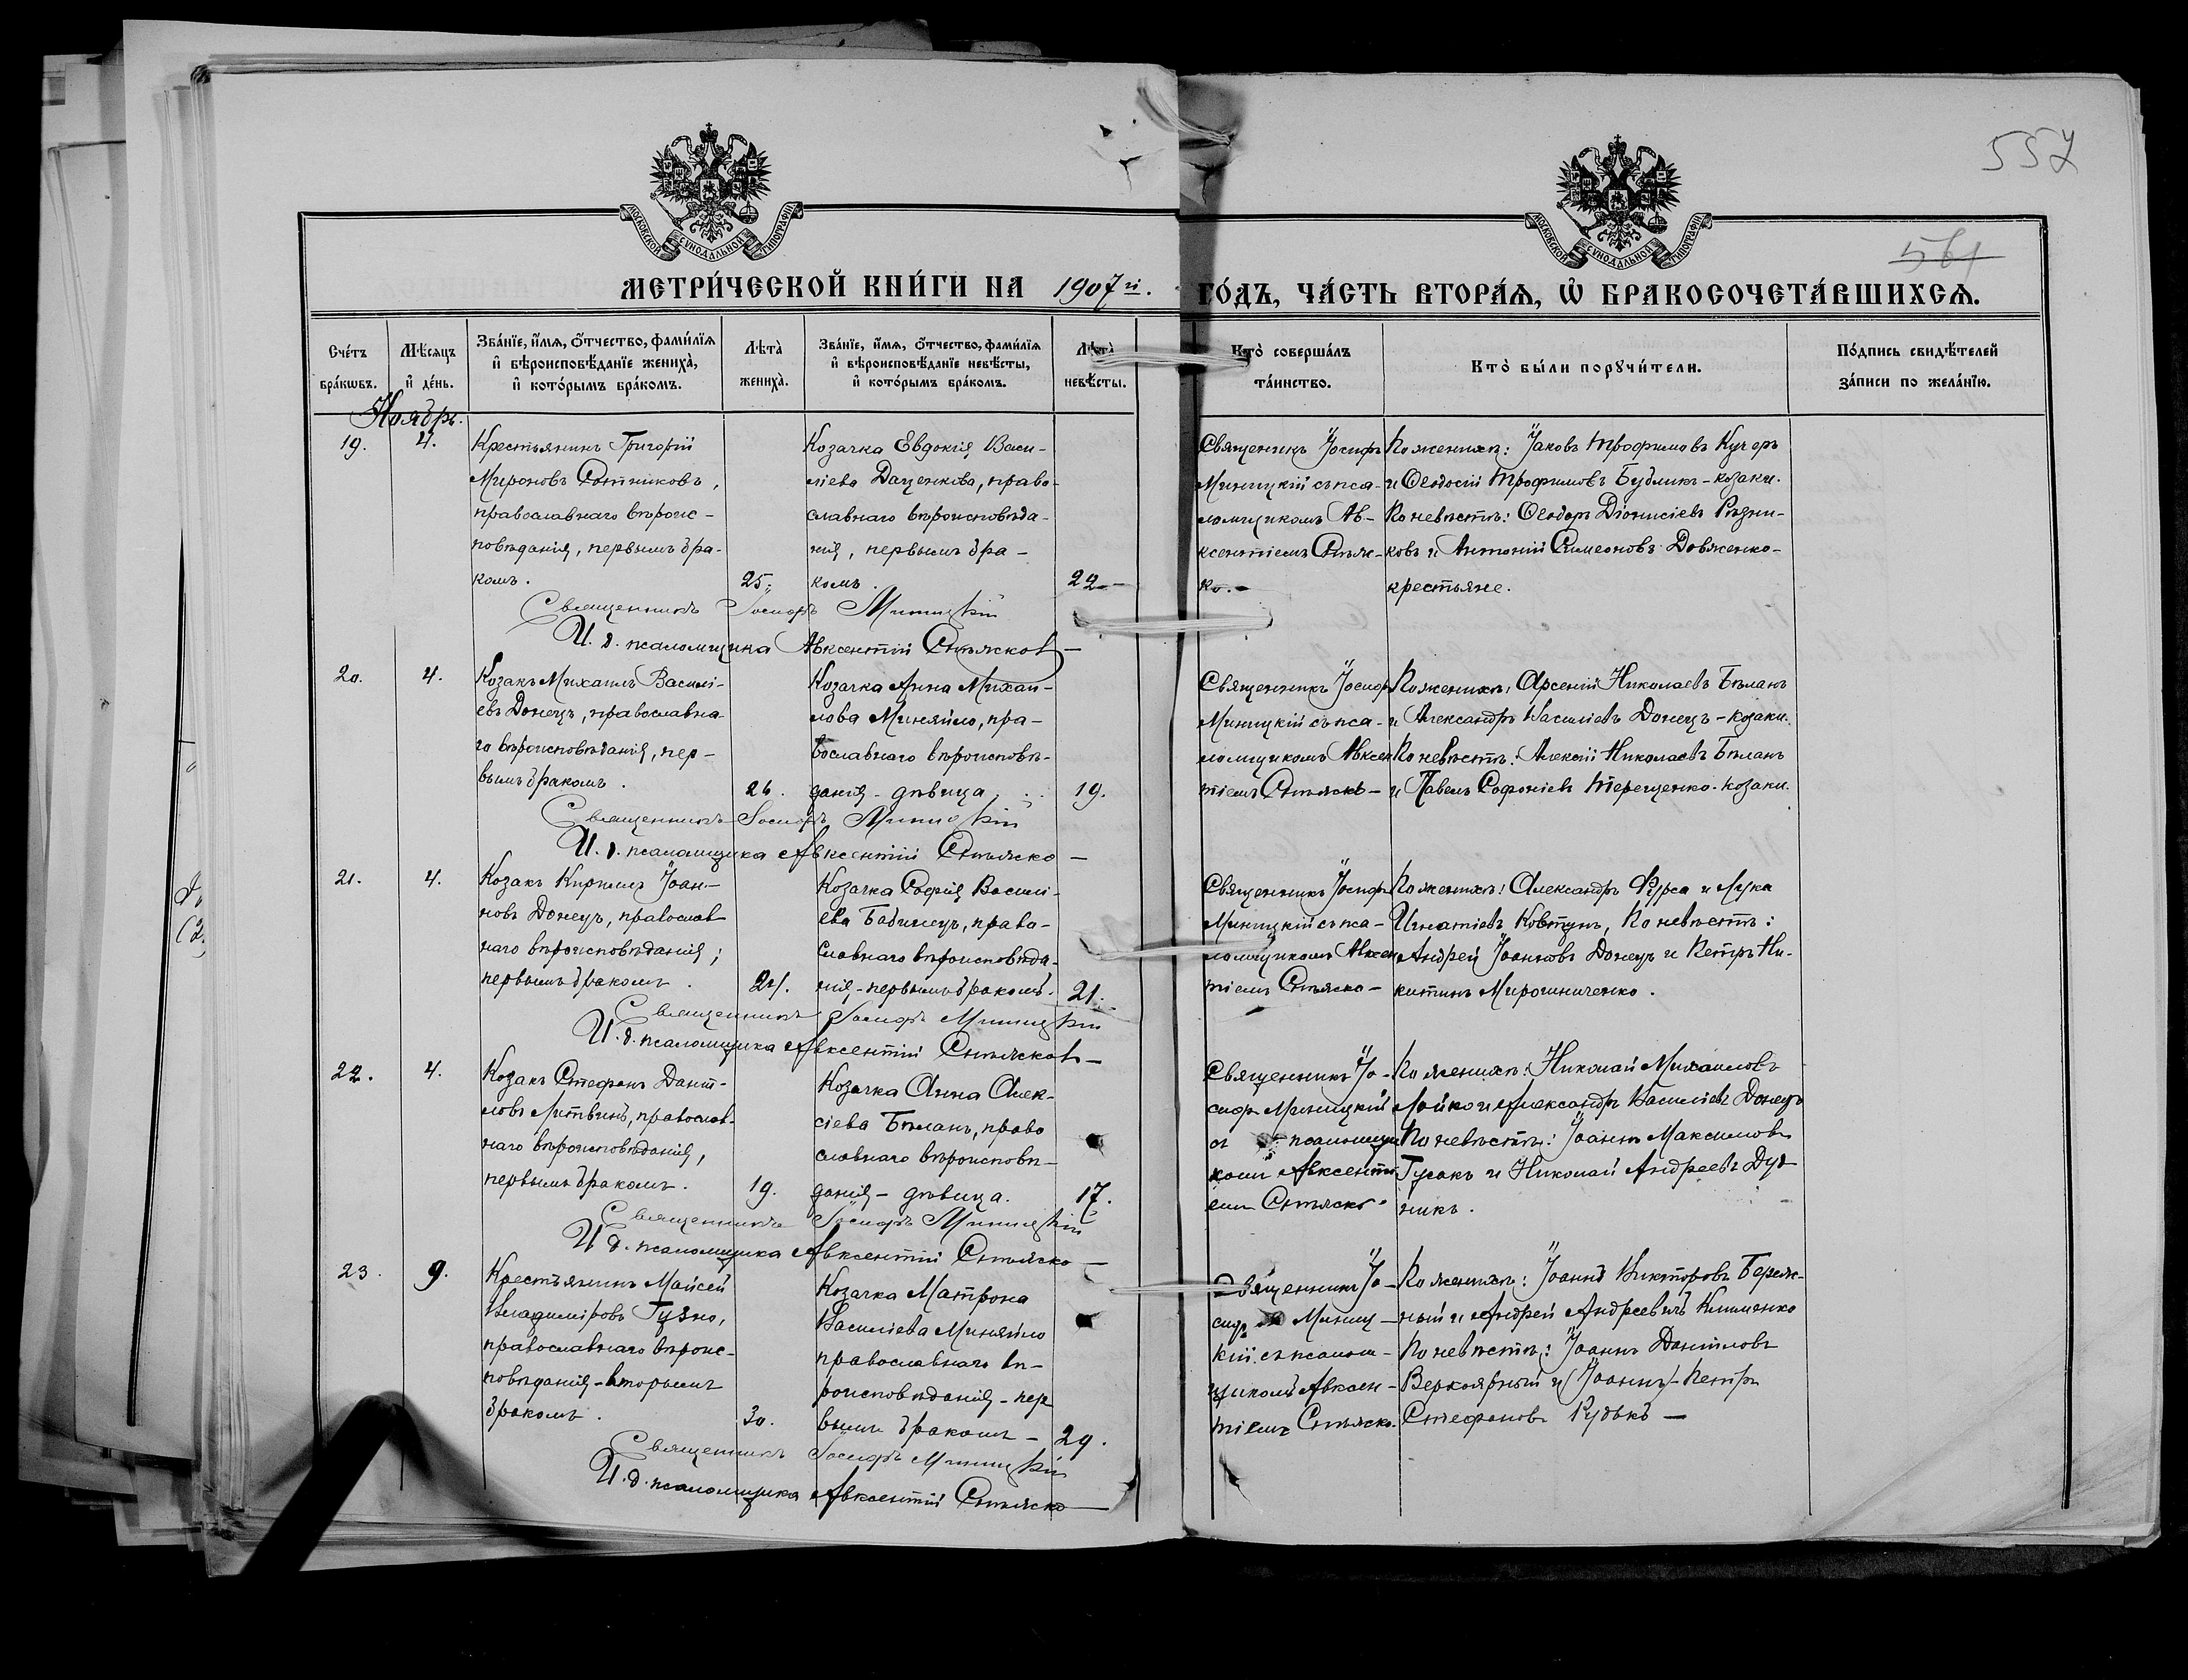 557
561
МОСКОВСКОЙ СѴНОДАЛЬНОЙ ТИПОГРАФІИ
МОСКОВСКОЙ СѴНОДАЛЬНОЙ ТИПОГРАФІИ
МЕТРИ́ЧЕСКОЙ КНИ́ГИ НА 1907 й. ГО́ДЪ, ЧА́СТЬ ВТОРА́Ѧ, Ѡ҆ БРАКОСОЧЕТА́ВШИХСѦ.
Сче́тъ бра́кѡвъ.
Мѣ́сяцъ и҆ де́нь.
Зва́нїе, и҆́мѧ, ѻ҆́тчество, фами́лїѧ
и҆ вѣроисповѣ́данїе жениха̀,
и҆ кото́рымъ бра́комъ.
Лѣта̀ жениха̀.
Зва́нїе, и҆́мѧ, ѻ҆́тчество, фами́лїѧ
и҆ вѣроисповѣ́данїе невѣ́сты,
и҆ кото́рымъ бра́комъ.
Лѣта̀ невѣ́сты.
Кто̀ соверша́лъ
та́инство.
Кто̀ бы́ли порꙋчи́тели.
По́дпись свидѣ́телей
за́писи по жела́нїю.
Ноябрь.
19.
4.
Крестьянинъ Григорій
Мироновъ Сотниковъ,
православнаго вѣроис-
повѣданія, первымъ бра-
комъ.
25.
Козачка Евдокія Васи-
ліева Даценкова, право-
славнаго вѣроисповѣда-
нія, первымъ бра-
комъ.
22
Священникъ Іосифъ
Миницкій съ пса-
ломщикомъ Ав-
ксентіемъ Стяж-
ко.
По женихѣ: Іаковъ Трофимовъ Кучеръ
и Ѳеодосій Трофимовъ Бубликъ - козаки.
По невѣстѣ: Ѳеодоръ Діонисіевъ Рѣзни-
ковъ и Антоній Симеоновъ Довженко -
крестьяне.
Священникъ Іосифъ Миницкій
И. д. псаломщика Авксентій
20.
4.
Козакъ Михаилъ Василі-
евъ Донецъ, православна-
го вѣроисповѣданія, пер-
вымъ бракомъ.
26.
Козачка Анна Михаи-
лова Миняйло, пра-
вославнаго вѣроисповѣ-
данія - дѣвица.
19.
Священникъ Іосифъ
Миницкій съ пса-
ломщикомъ Авксен
тіемъ
По женихѣ: Арсеній Николаевъ Бѣланъ
и Александръ Василіевъ Донецъ - козаки.
По невѣстѣ: Алексій Николаевъ Бѣланъ
и Павелъ Софоніевъ Терещенко - козаки.
Священникъ Іосифъ Миницкій
И. д. псаломщика Авксентій
21.
4.
Козакъ Кириллъ Іоан-
новъ Донецъ, православ
наго вѣроисповѣданія;
первымъ бракомъ.
24.
Козачка Софія Василі-
ева Бабинецъ, право-
славнаго вѣроисповѣда-
нія, - первымъ бракомъ.
21.
Священникъ Іосифъ
Миницкій съ пса-
ломщикомъ Авксен
тіемъ
По женихѣ: Александръ Фурса и Лука
Игнатіевъ Ковтунъ, По невѣстѣ:
Андрей Іоанновъ Донецъ и Петръ Ни-
китинъ Мирошниченко.
Священникъ Іосифъ Миницкій
И. д. псаломщика Авксентій
22.
4.
Козакъ Стефанъ Дани-
ловъ Литвинъ, православ-
наго вѣроисповѣданія,
первымъ бракомъ.
19.
Козачка Анна Алек-
сіева Бѣланъ, право
славнаго вѣроисповѣ-
данія - дѣвица.
17.
Священникъ Іо-
сифъ Миницкій
съ псаломщи
комъ Авксенті
емъ
По женихѣ: Николай Михаиловъ
Лойко и Александръ Василіевъ Донецъ
По невѣстѣ: Іоаннъ Максимовъ
Гусакъ и Николай Андреевъ Дуд
никъ.
Священникъ Іосифъ Миницкій
И. д. псаломщика Авксентій
23.
9.
Крестьянинъ Моисей
Владиміровъ Гузно,
православнаго вѣроис-
повѣданія - вторымъ
бракомъ.
30.
Козачка Матрона
Василіева Миняйло
православнаго вѣ-
роисповѣданія - пер
вымъ бракомъ -
29.
Священникъ Іо-
сифъ Миниц-
кій съ псалом-
щикомъ Авксен-
тіемъ
По женихѣ: Іоаннъ Викторовъ Береж-
ный и Андрей Андреевичъ Клименко
По невѣстѣ: Іоаннъ Даниловъ
Верхоярный и (Іоаннъ) - Петръ
Стефановъ Рудькъ -
Священникъ Іосифъ Миницкій
И. д. псаломщика Авксентій